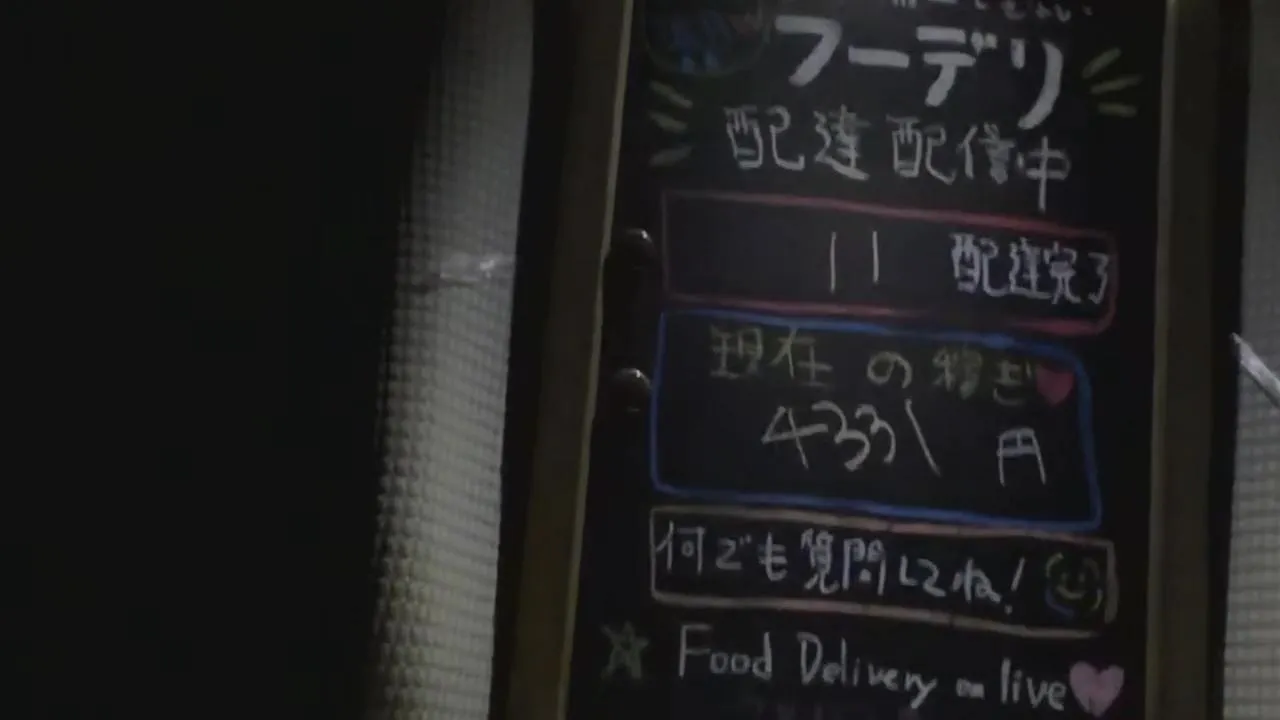 フーデリ
配達配信中
11 配達完了
現在の稼ぎ
4331 円
何でも質問してね!
Food Delivery on live